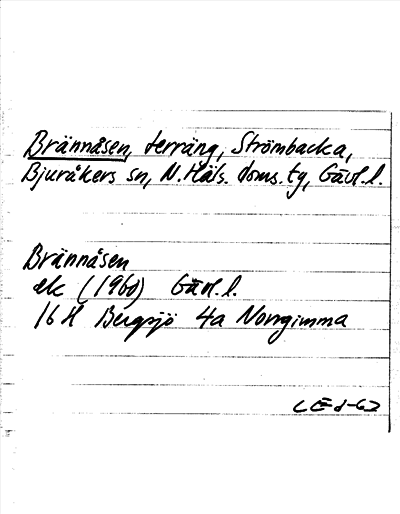 Brännåsen, terräng, Strömbacka,
Bjuråkers sn, N. Häls. doms. tg, Gävl. l.
Brännåsen
ek (1960) Gävl. l.
16 H Bergsjö 4a Norrgimma